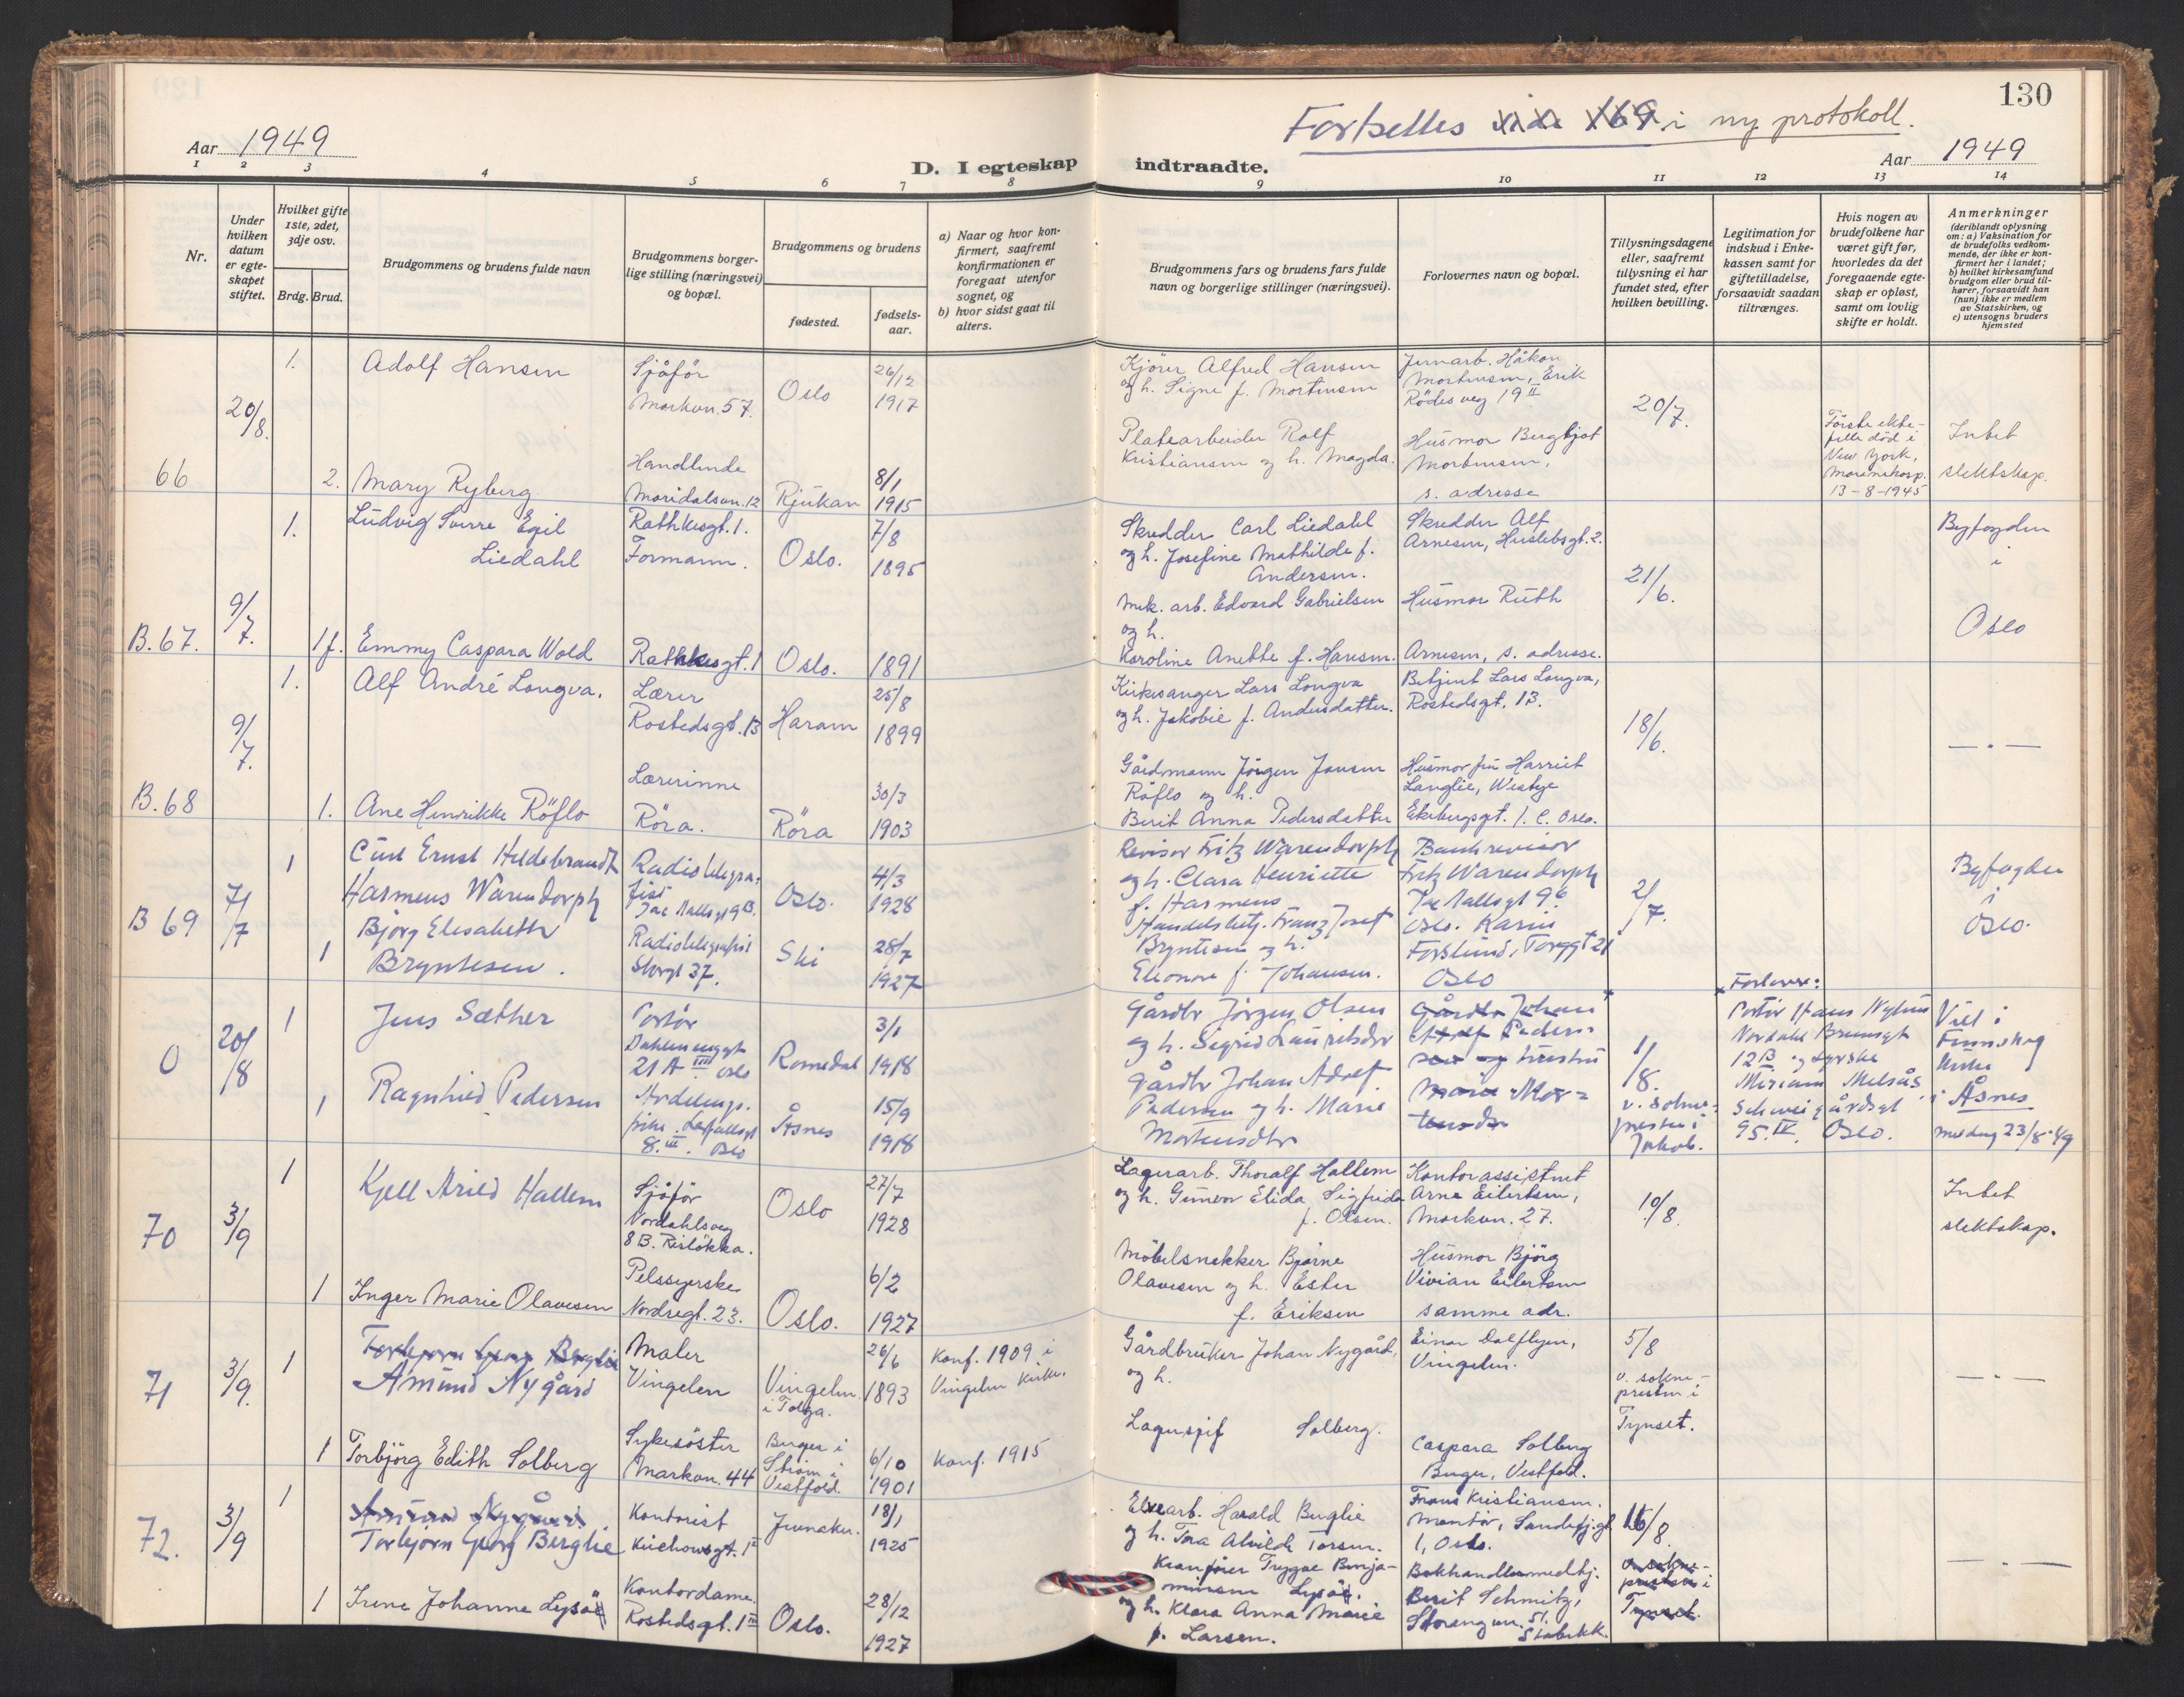 130
Fortsettes i ny protokoll.
Aar 1949
D. I egteskap indtraadte.
Aar 1949
1 2 3 4 5 6 7 8 9 10 11 12 13 14
Nr.
Under hvilken datum er egteskapet stiftet.
Hvilket gifte 1ste, 2det, 3dje osv.
Brdg. Brud.
Brudgommens og brudens fulde navn
Brudgommens borgerlige stilling (næringsvei) og bopæl.
Brudgommens og brudens
fødested.
fødselsaar.
a) Naar og hvor konfirmert, saafremt konfirmationen er foregaat utenfor sognet, og
b) hvor sidst gaat til alters.
Brudgommens fars og brudens fars fulde navn og borgerlige stillinger (næringsvei).
Forlovernes navn og bopæl.
Tillysningsdagene eller, saafremt tillysning ei har fundet sted, efter hvilken bevilling.
Legitimation for indskud i Enkekassen samt for giftetilladelse, forsaavidt saadan tiltrænges.
Hvis nogen av brudefolkene har været gift før, hvorledes da det foregaaende egteskap er opløst, samt om lovlig skifte er holdt.
Anmerkninger (deriblandt oplysning om: a) Vaksination for de brudefolks vedkommende, der ikke er konfirmert her i landet; b) hvilket kirkesamfund brudgom eller brud tilhører, forsaavidt han (hun) ikke er medlem av Statskirken, og c) utensogns bruders hjemsted
66
20/8.
1. Adolf Hansen
Sjåfør
Markvn. 57.
Oslo
26/12
1917
Kjører Alfred Hansen
og h. Signe f. Mortensen
Jernarb. Håkon
Mortensen, Erik
Rödes veg 19 II
20/7.
2. Mary Ryberg
Handlende
Maridalsvn. 12
Rjukan
8/1
1915
Platearbeider Rolf
Kristiansen og h. Magda.
Husmor Bergljot
Mortensen,
s. adresse
Første ekte-
felle død i
New York,
13-8-1945
Intet
slektskap.
B. 67.
9/7.
1. Ludvig Sverre Egil
Liedahl
Rathkesgt. 1.
Formann.
Oslo.
7/8
1895
Skredder Carl Liedahl
og h. Josefine Mathilde f.
Andersen.
Skredder Alf
Arnesen, Huslebsgt. 2.
21/6.
Byfogden
i
Oslo
1 f. Emmy Caspara Wold
Rathkesgt. 1
Oslo.
1891
Mek. arb. Edvard Gabrielsen
og h.
Karoline Anette f. Hansen.
Husmor Ruth
Arnesen, s. adresse.
B. 68
9/7.
1. Alf André Longva.
Lærer
Rostedsgt. 13
Haram
25/8
1899
Kirkesanger Lars Longva
og h. Jakobie f. Andersdatter.
Betjent Lars Longva,
Rostedsgt. 13.
18/6.
— " —
1. Ane Henrikke Röflo
Lærerinne
Röra.
Röra
30/3
1903
Gårdmann Jörgen Jensen
Röflo og h.
Berit Anna Pedersdatter
Husmor fru Harriet
Langlie, Westye
Ekebergsgt. 1. C. Oslo.
B 69
7/7
1 Curt Ernst Hildebrandt
Harmens Warendorph
Radiotelegra-
fist
Jac Aallsgt 9 B.
Oslo.
4/3
1928
Revisor Fritz Warendorph
og h. Clara Henriette
f. Harmens
Bankrevisor
Fritz Warendorph
Jac Aallsgt 9 B
Oslo. Karin
Forslund, Torggt 21
Oslo
2/7.
Byfogden
i
Oslo.
1 Bjørg Elisabeth
Bryntesen.
Radiotelegrafist
Storgt 37.
Ski
28/7
1927
Handelsbetj. Franz Josef
Bryntesen og h.
Eleonore f. Johansen.
0
20/8
1 Jens Sæther
Portör
21 A III Oslo
Romedal
3/1
1918
Gårdbr Jörgen Olsen
og h. Sigrid Lauritsdtr
Gårdbr Johan
1/8.
v. sokne-
presten i
Jakob.
Forlovere:
Portör Hans Nylund
12 B og syerske
Miriam Melsås
Schweigårdsgt
95. IV. Oslo.
Viet i
Finnskog
kirke
i Åsnes
1 Ragnhild Pedersen
8. III. Oslo
Åsnes
15/9
1918
Gårdbr Johan Adolf
Pedersen og h. Marie
Mortensdtr
70
3/9
1 Kjell Arild Hallem
Sjåför
Nordahlsveg
8 B. Risløkka.
Oslo
27/7
1928
Lagerarb. Thoralf Hallem
og h. Gunvor Elida Sigfrida
f. Olsen.
Kontorassistent
Arne Eilertsen,
Markvn. 27.
10/8.
Intet
slektskap.
1 Inger Marie Olavesen
Pelssyerske
Nordregt. 23.
Oslo.
6/2
1927
Möbelsnekker Bjarne
Olavesen og h. Ester
f. Eriksen
Husmor Björg
Vivian Eilertsen
samme adr.
71
3/9.
1 Torbjørn Georg Berglie
Amund Nygård
Maler
Vingelen
Vingelen
i Tolga.
26/6
1893
Konf. 1909 i
Vingelen kirke.
Gårdbruker Johan Nygård,
og h.
Einar Dalflyen,
Vingelen.
5/8
v. sokne-
presten i
Tynset.
— " —
1 Torbjörg Edith Solberg
Sykesöster
Markvn. 44
Berger i
Strøm i
Vestfold.
6/10
1901
Konf. 1915
Lagersjef Solberg.
Caspara Solberg
Berger, Vestfold.
72.
3/9
1 Amund Nygård.
Torbjørn Georg Berglie
Kontorist
Jevnaker.
18/1
1925
Harald Berglie
og h. Tora Alvilde Torsen.
Frans Kristiansen.
Montør, Sandefj.gt
1, Oslo.
16/8.
v. sokne-
presten i
Tynset.
— " —
1 Irene Johanne Lysö
Kontordame.
Rostedsgt. 1 III
Oslo.
28/12
1927
Kranfører Trygve Benja-
minsen Lysö.
og h. Klara Anna Marie
f. Larsen.
Bokhandlermedhj.
Berit Schmitz,
Storengvn. 51.
Stabekk.